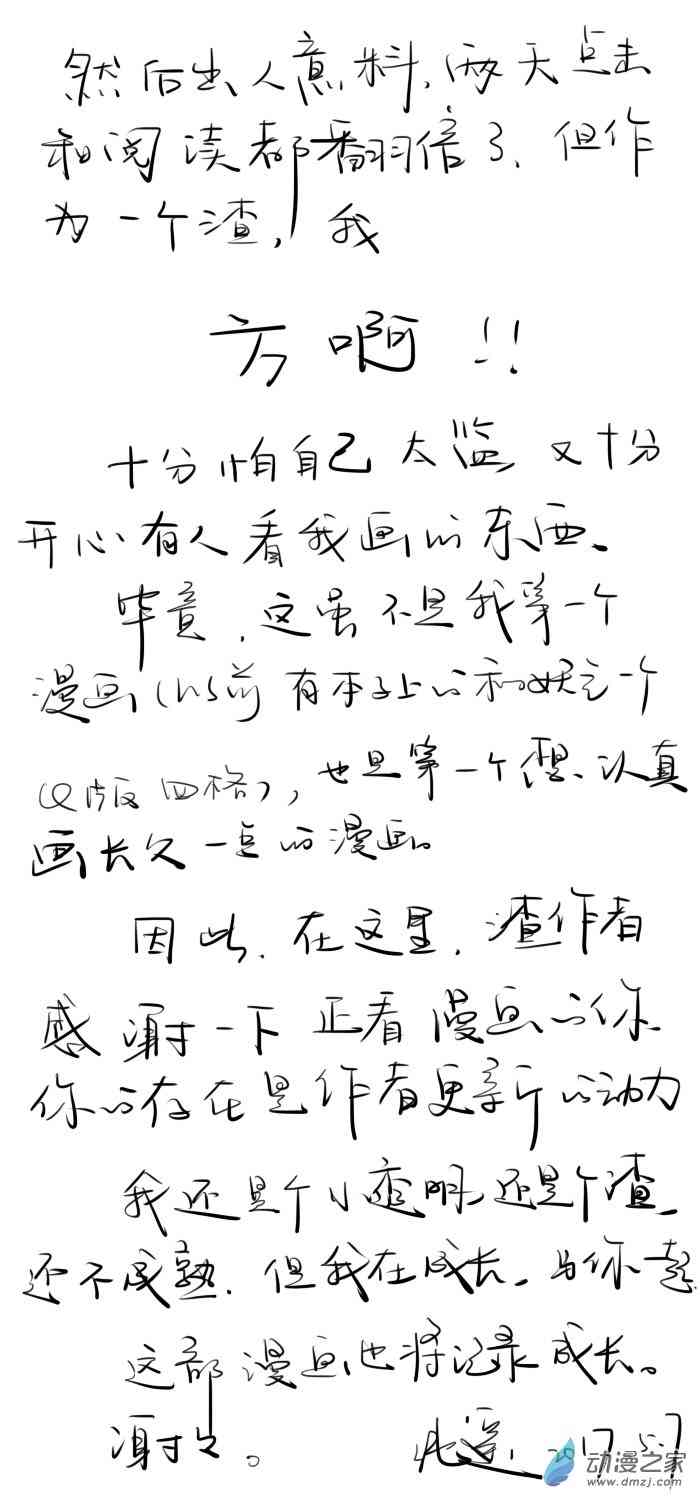 然后出人意料,两天点击
和阅读都翻倍了、但作
为一个渣,我
方啊!!
十分怕自己太监,又十分
开心有人看我画的东西、
毕竟,这虽不是我第一个
漫画(以前有本子上的和妖言一个
Q版四格),也是第一个想认真
画长久一点的漫画。
因此、在这里,渣作者
感谢一下正看漫画的你
你的存在是作者更新的动力
我还是个小透明,还是个渣,
还不成熟、但我在成长,与你一起
这部漫画也将记录成长。
谢谢。
2017.5.7
动漫之家
www.dmzj.com